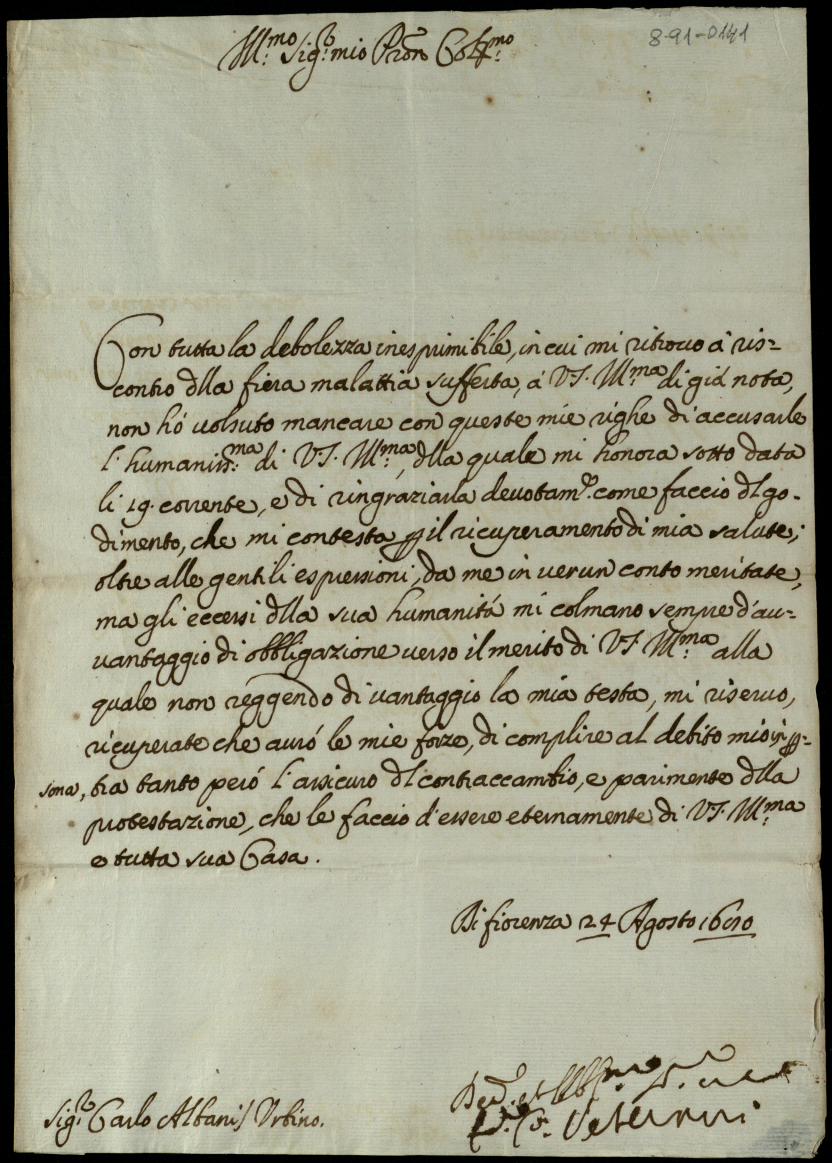 8-91-0141
Ill:mo Sig:re mio Pron Col:mo
Con tutta la debolezza inesprimibile, in cui mi ritrovo à ris=
contro dlla fiera malattia sufferta, à V.S. Ill:ma di già nota,
non hò volsuto mancare con queste mie righe di accusarle
l'humaniss:ma di V.S. Ill:ma, dlla quale mi honora sotto data
li 19. corrente, e di ringraziarla devotam:te come faccio dl go-
dimento, che mi contesta p il ricuperamento di mia salute,
oltre alle gentili espressioni, da me in verun conto meritate,
ma gli eccessi dlla sua humanità mi colmano sempre d'av-
vantaggio di obbligazione verso il merito di V.S. Ill:ma alla
quale non reggendo di vantaggio la mia testa, mi riservo,
ricuperate che avrò le mie forze, di complire al debito mio in p-
sona, tra tanto però l'assicuro dl contraccambio, e parimente dlla
protestazione, che le faccio d'essere eternamente di V.S. Ill:ma
e tutta sua Casa.
Di fiorenza 24 Agosto
Sig:re Carlo Albani / Urbino.
Veterani